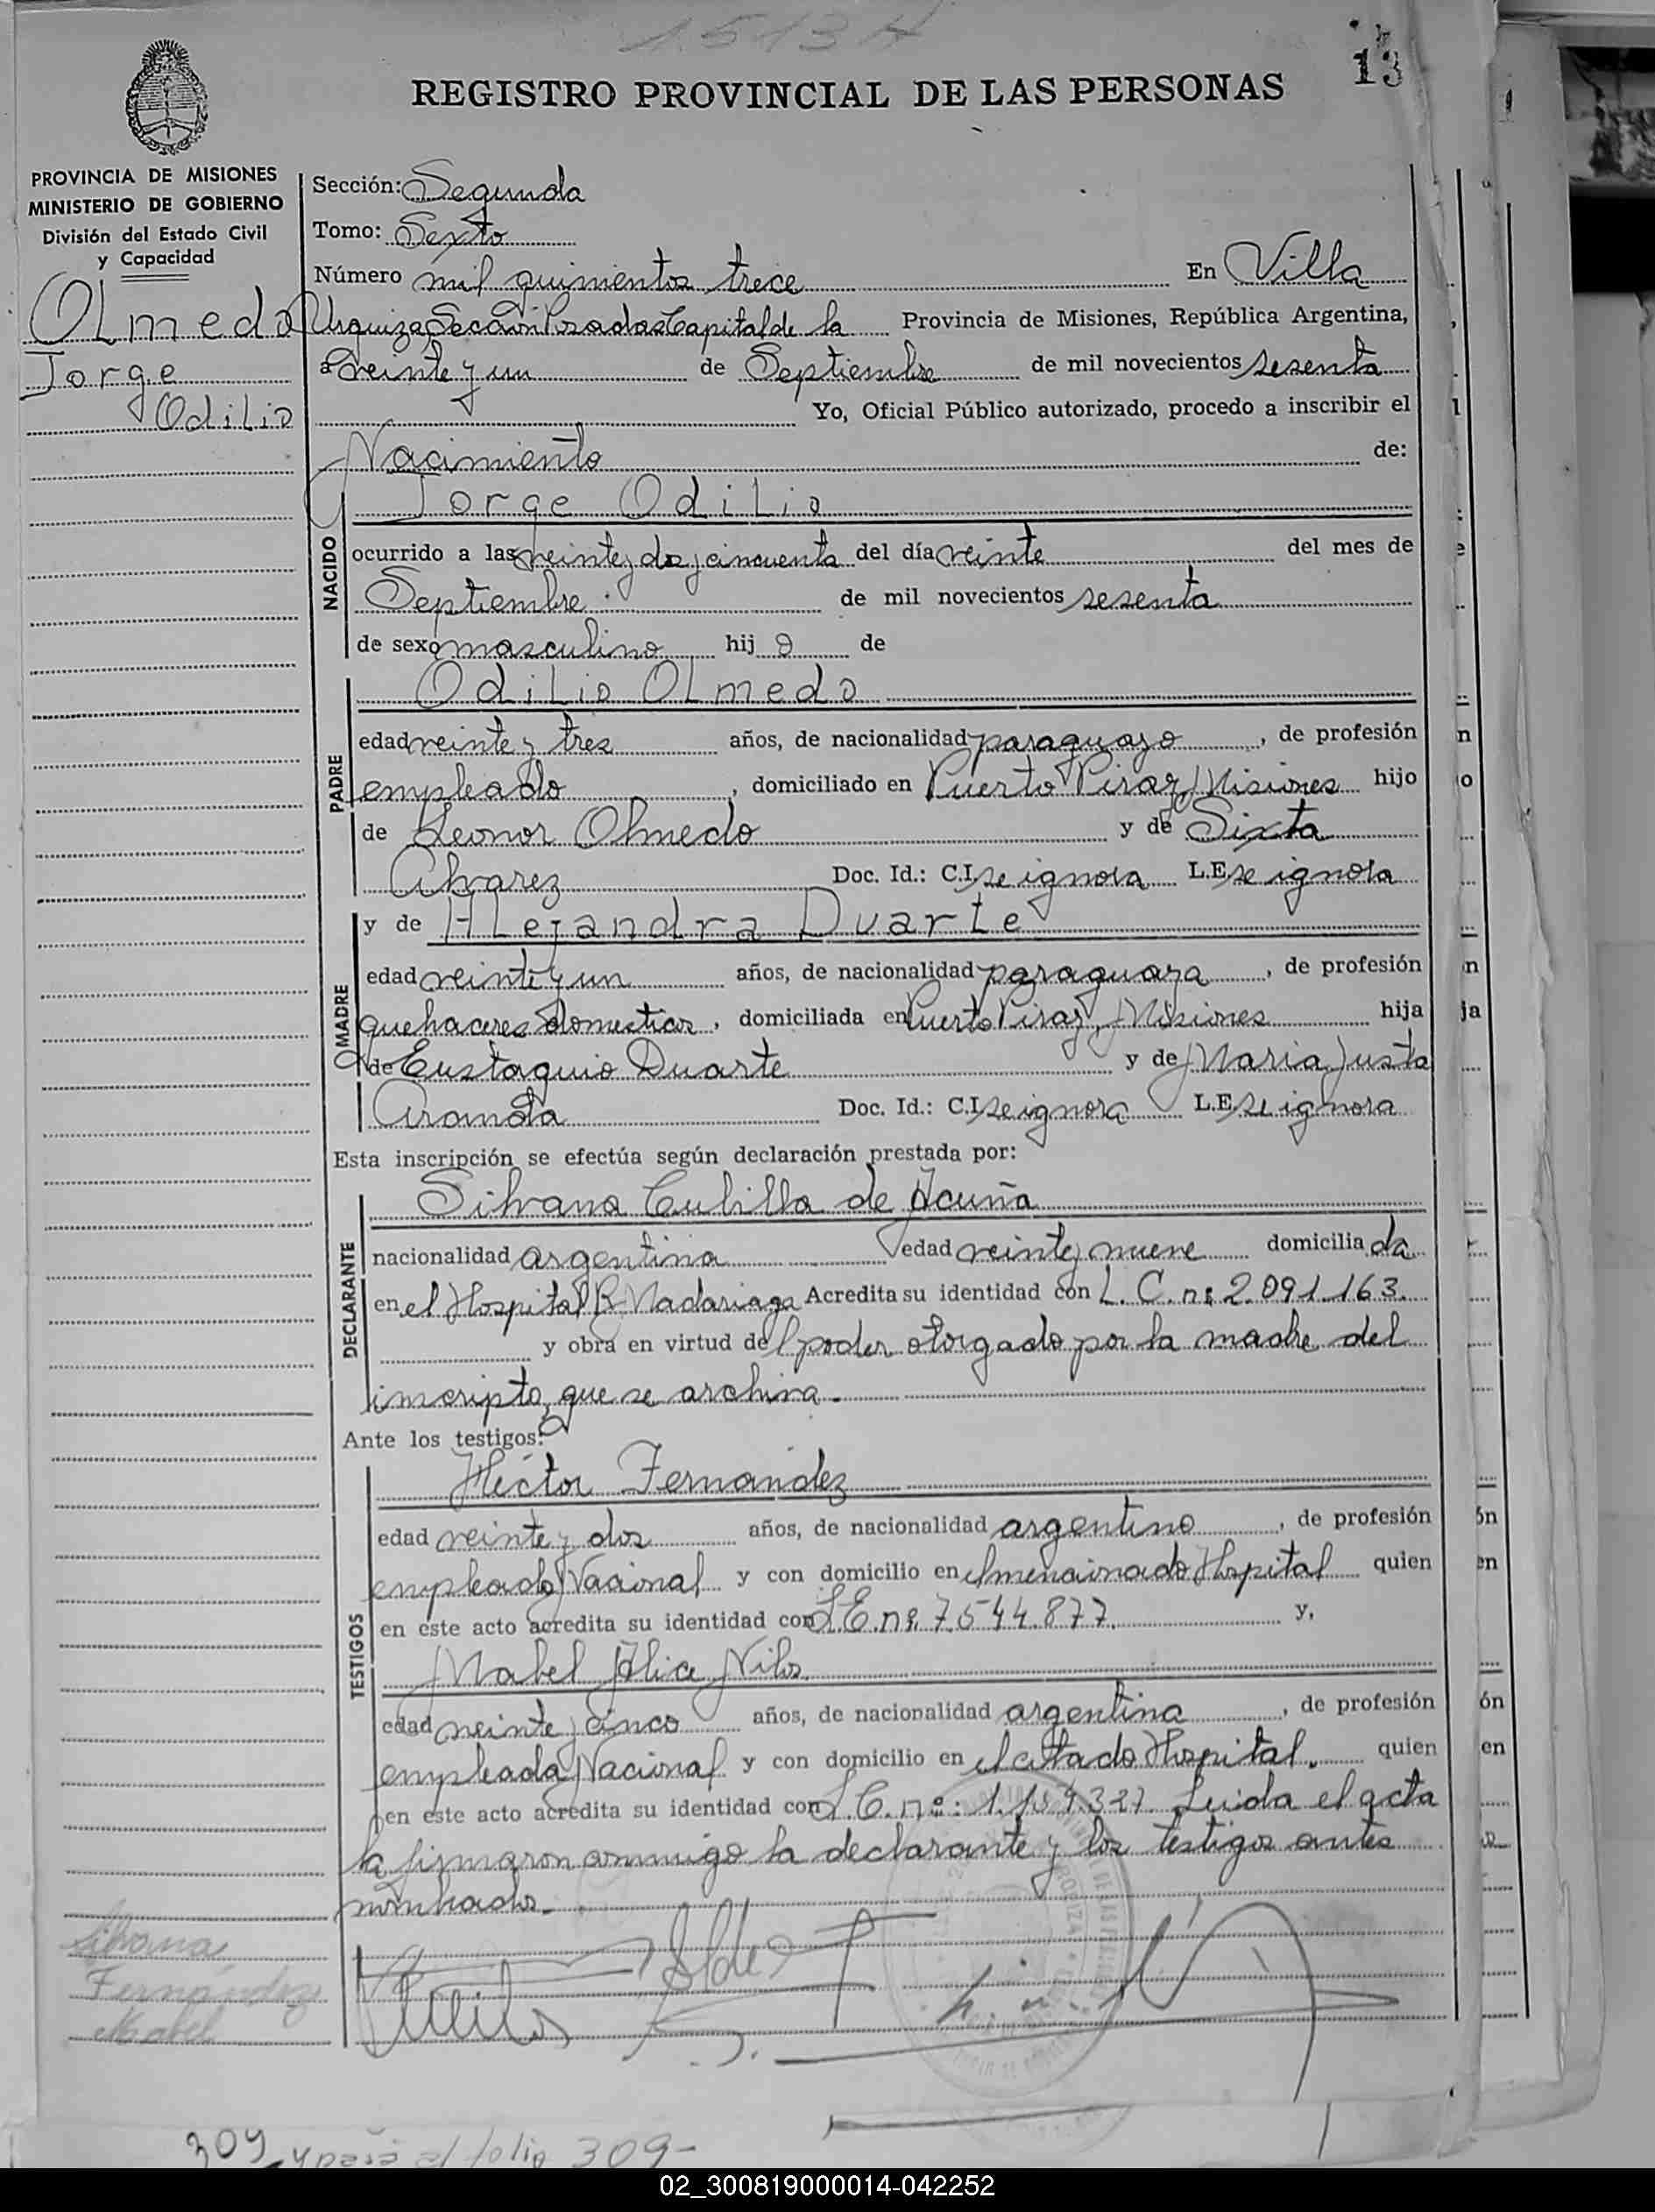 1513 A
13
REGISTRO PROVINCIAL DE LAS PERSONAS
PROVINCIA DE MISIONES
MINISTERIO DE GOBIERNO
División del Estado Civil
y Capacidad
OLmedo
Jorge
Odilio
Sección: Segunda
Tomo: Sexto
Número mil quinientos trece En Villa
Urquiza, Sección Posadas Capital de la Provincia de Misiones, República Argentina,
a veinte y un de Septiembre de mil novecientos sesenta
Yo, Oficial Público autorizado, procedo a inscribir el
Nacimiento de:
NACIDO
Jorge OdiLio
ocurrido a las veinte y dos y cincuenta del día veinte del mes de
Septiembre de mil novecientos sesenta
de sexo masculino hij o de
PADRE
OdiLio OLmedo
edad veinte y tres años, de nacionalidad paraguayo, de profesión
empleado, domiciliado en Puerto Piray, Misiones hijo
de Leonor Olmedo y de Sixta
Alvarez Doc. Id.: C.I. se ignora L.E. se ignora
MADRE
y de ALejandra Duarte
edad veinte y un años, de nacionalidad paraguaya, de profesión
quehaceres domesticos, domiciliada en Puerto Piray, Misiones hija
de Eustaquio Duarte y de Maria Justa
Aranda Doc. Id.: C.I. se ignora L.E. se ignora
Esta inscripción se efectúa según declaración prestada por:
DECLARANTE
Silvana Cubilla de Acuña
nacionalidad argentina edad veinte y nueve domicilia da
en el Hospital R. Madariaga Acredita su identidad con L. C. nº 2.091.163.
y obra en virtud del poder otorgado por la madre del
inscripto, que se archiva.
Ante los testigos:
TESTIGOS
Héctor Fernández
edad veinte y dos años, de nacionalidad argentino, de profesión
empleado Nacional y con domicilio en el mencionado Hospital quien
en este acto acredita su identidad con L.E. nº 7.544.877. y,
Mabel Alice Nilos
edad veinte y cinco años, de nacionalidad argentina, de profesión
empleada Nacional y con domicilio en el citado Hospital. quien
en este acto acredita su identidad con L.C. nº: Leida el acta
la firmaron conmigo la declarante y los testigos antes
nombrados.
Silvana
Fernández
Mabel
309 y pasa al folio 309-
02_300819000014-042252